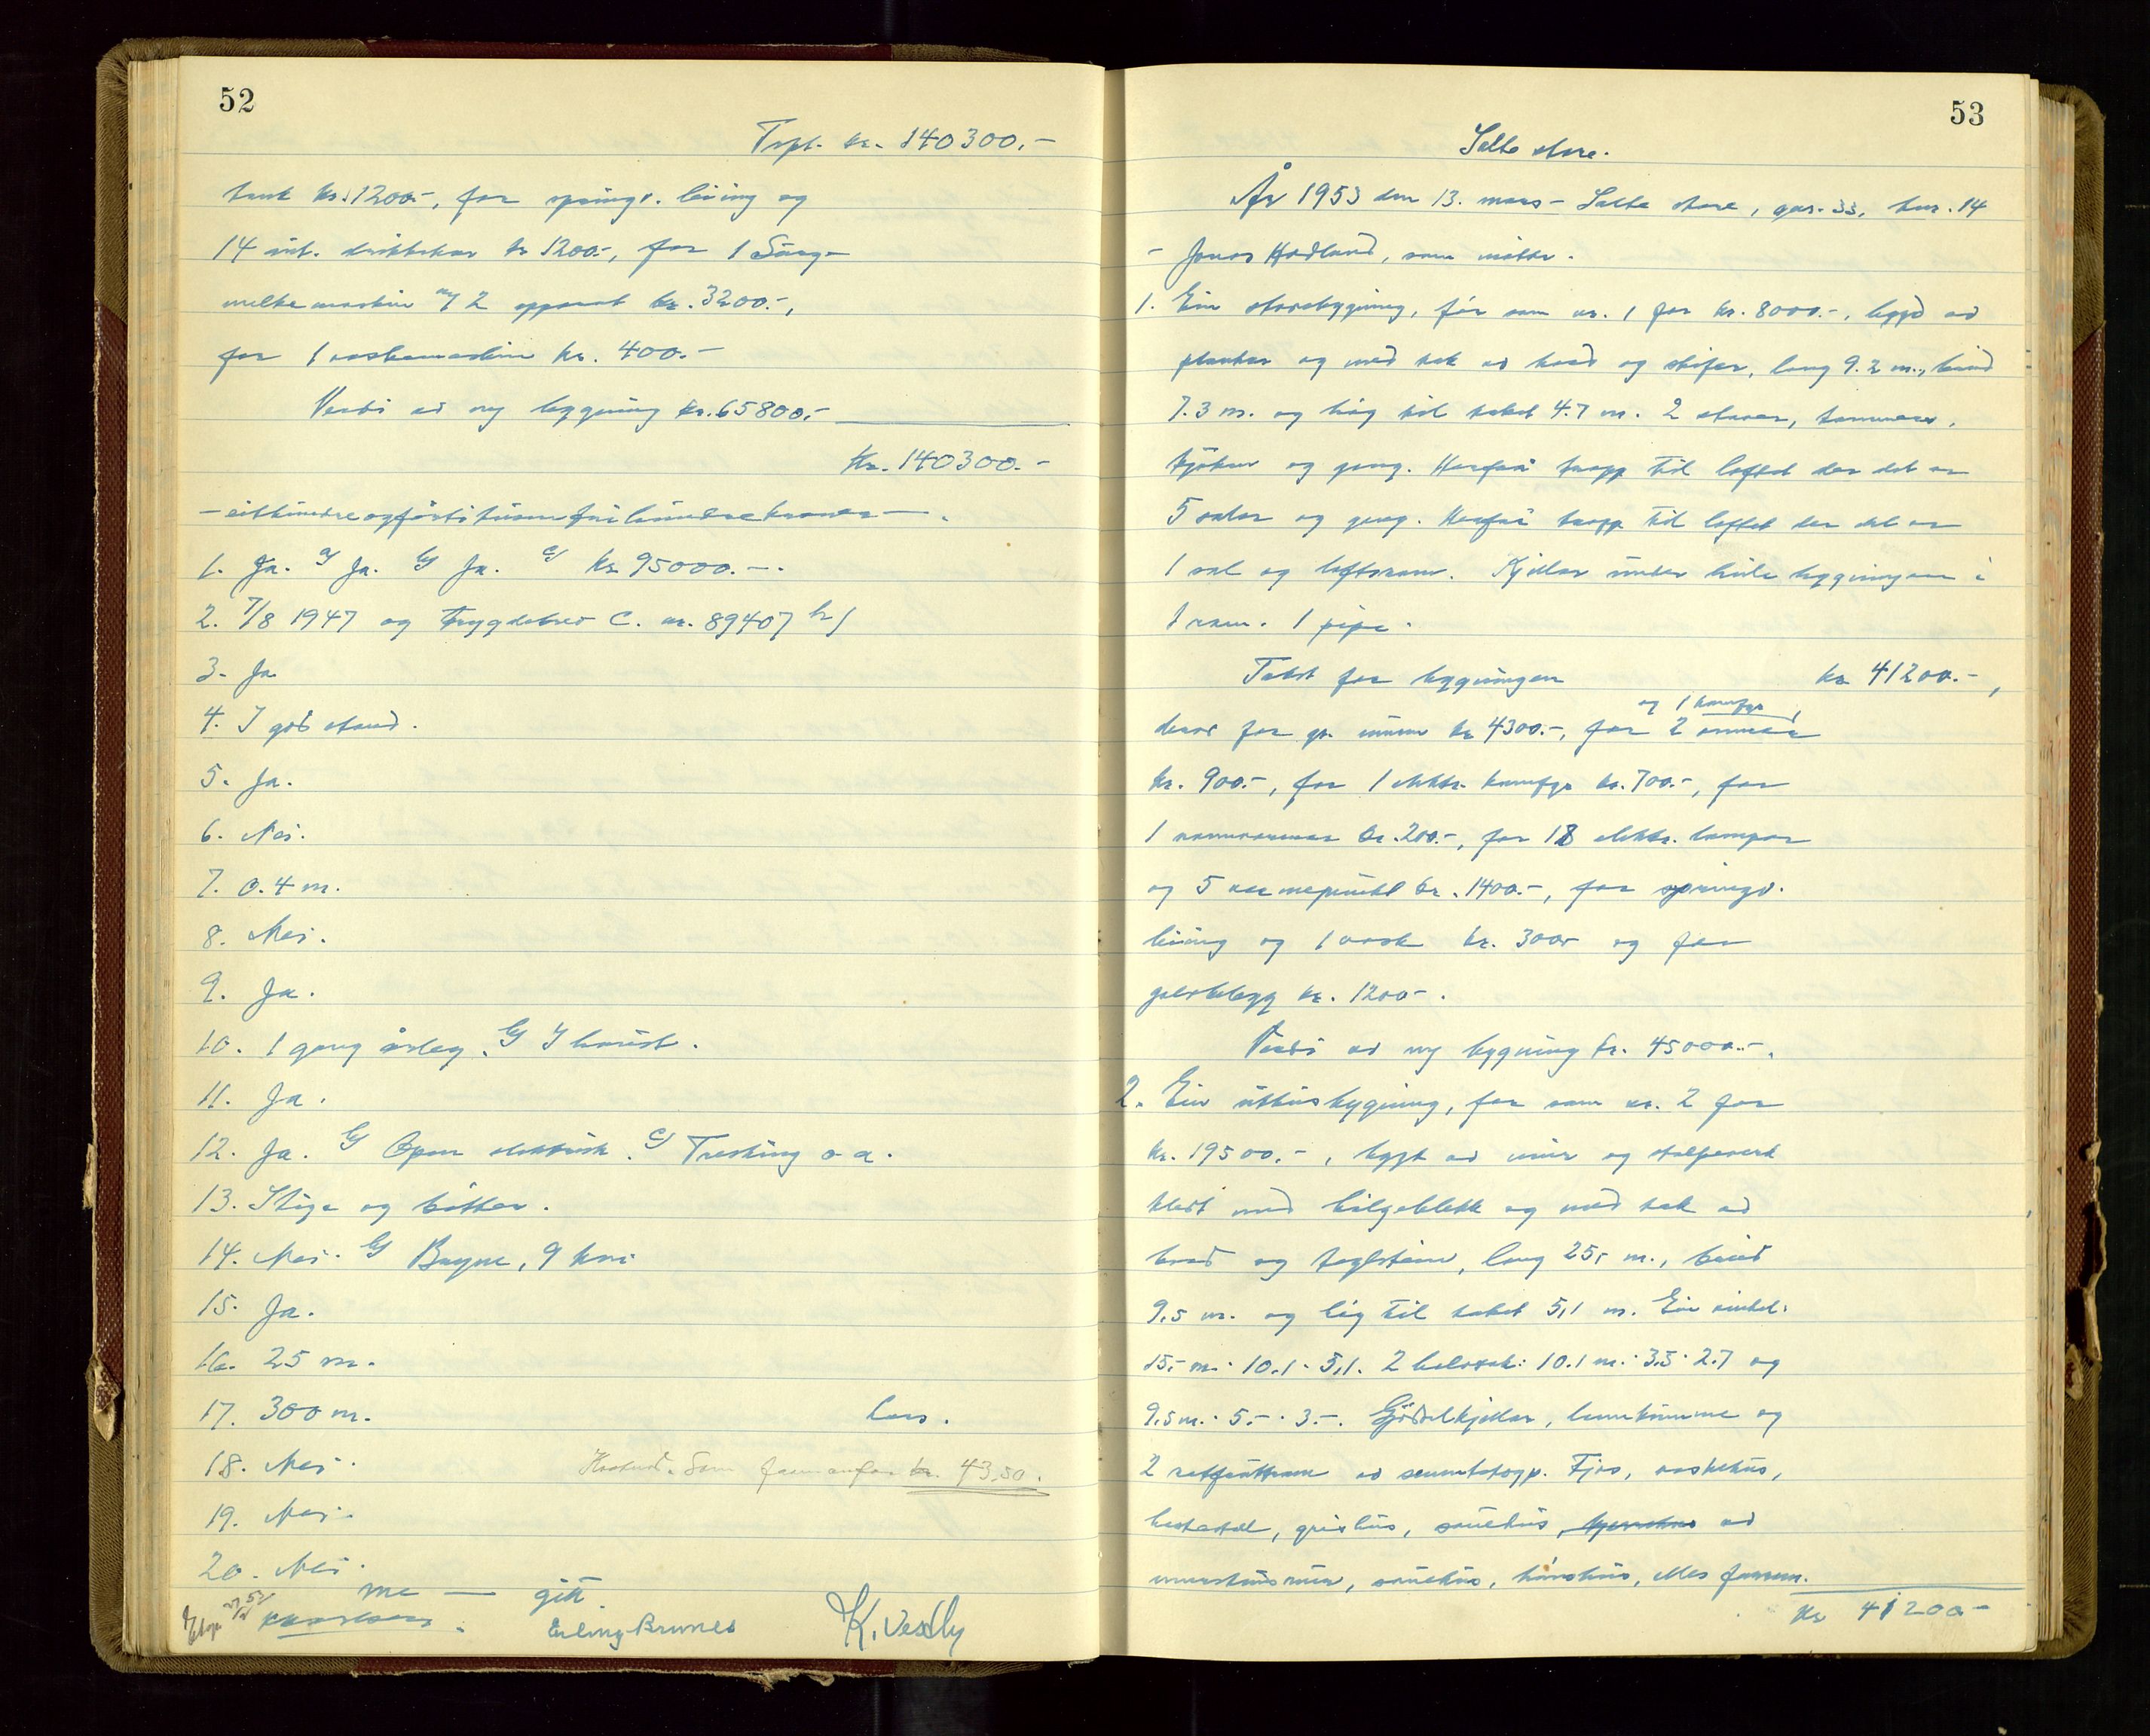 52
Trpt. kr. 140300.-
tank kr. 1200.-, for springv. leiing og
14 aut. drikkekar kr 1200.-, for 1
melkemaskin m/ 2 apparat kr. 3200.-,
for 1 vaskemaskin kr. 400.-
Verdi av ny bygning kr. 65800.-
Kr. 140300.-
- eithundreogførtitusentrihundrekroner -.
1. Ja. a/ Ja. b/ Ja. c/ kr 95000.-.
2. 7/8 1947 og trygdebrev C. nr. 89407 b/
3. Ja
4. I god stand.
5. Ja.
6. Nei.
7. 0.4 m.
8. Nei.
9. Ja.
10. 1 gong årleg. b/ I haust.
11. Ja.
12. Ja. b/ Open elektrisk. c/ Tresking o a.
13. Stige og bøtter.
14. Nei. b/ Bryne, 9 km
15. Ja.
16. 25 m.
17. 300 m.
18. Nei.
Kostnad. Som framanfor kr. 43,50.
19. Nei.
20. Nei.
Erling Brunes
K. Vestly
53
Salte store.
År 1953 den 13. mars - Salte store, gnr. 33, bnr. 14
- Jonas Hødland, som møtte.
1. Ein stovebygning, før som nr. 1 for kr. 8000.-, bygd av
plankar og med tak av bord og skifer, lang 9.2 m., breid
7.3 m. og høg til taket 4.7 m. 2 stover, kammers,
kjøken og gang. Herfrå tropp til loftet der det er
5 salar og gang. Herfrå tropp til loftet der det er
1 sal og loftsrom. Kjellar under heile bygningen i
1 rom. 1 pipe.
Takst for bygningen kr 41200.-,
og 1 komfyr
derav for gr. muren kr 4300.-, for 2 omnar
kr. 900.-, for 1 elektr. komfyr kr. 700.-, for
1 kr. 200.-, for 18 elektr. lampar
og 5 varmepunkt kr. 1400.-, for springv.
leiing og 1 vask kr. 300.- og for
golvbelegg kr. 1200.-.
Verdi av ny bygning kr. 45000.-.
2. Ein uthusbygning, før som nr. 2 for
kr. 19500.-, bygt av mur og stolpeverk
kledt med bølgeblekk og med tak av
bord og teglstein, lang 25,- m., breid
9,5 m. og høg til taket 5,1 m. Ein vinkel:
15,- m. · 10.1 · 5,1. 2 halvtak: 10.1 m. · 3.5 · 2.7 og
9,5 m. · 5.- · 3.-. Gjødselkjellar, landkumme og
2 av sementstøyp. Fjøs, vaskehus,
hestestal, grishus, sauehus, av
sauehus, hønshus, elles
kr 41200.-